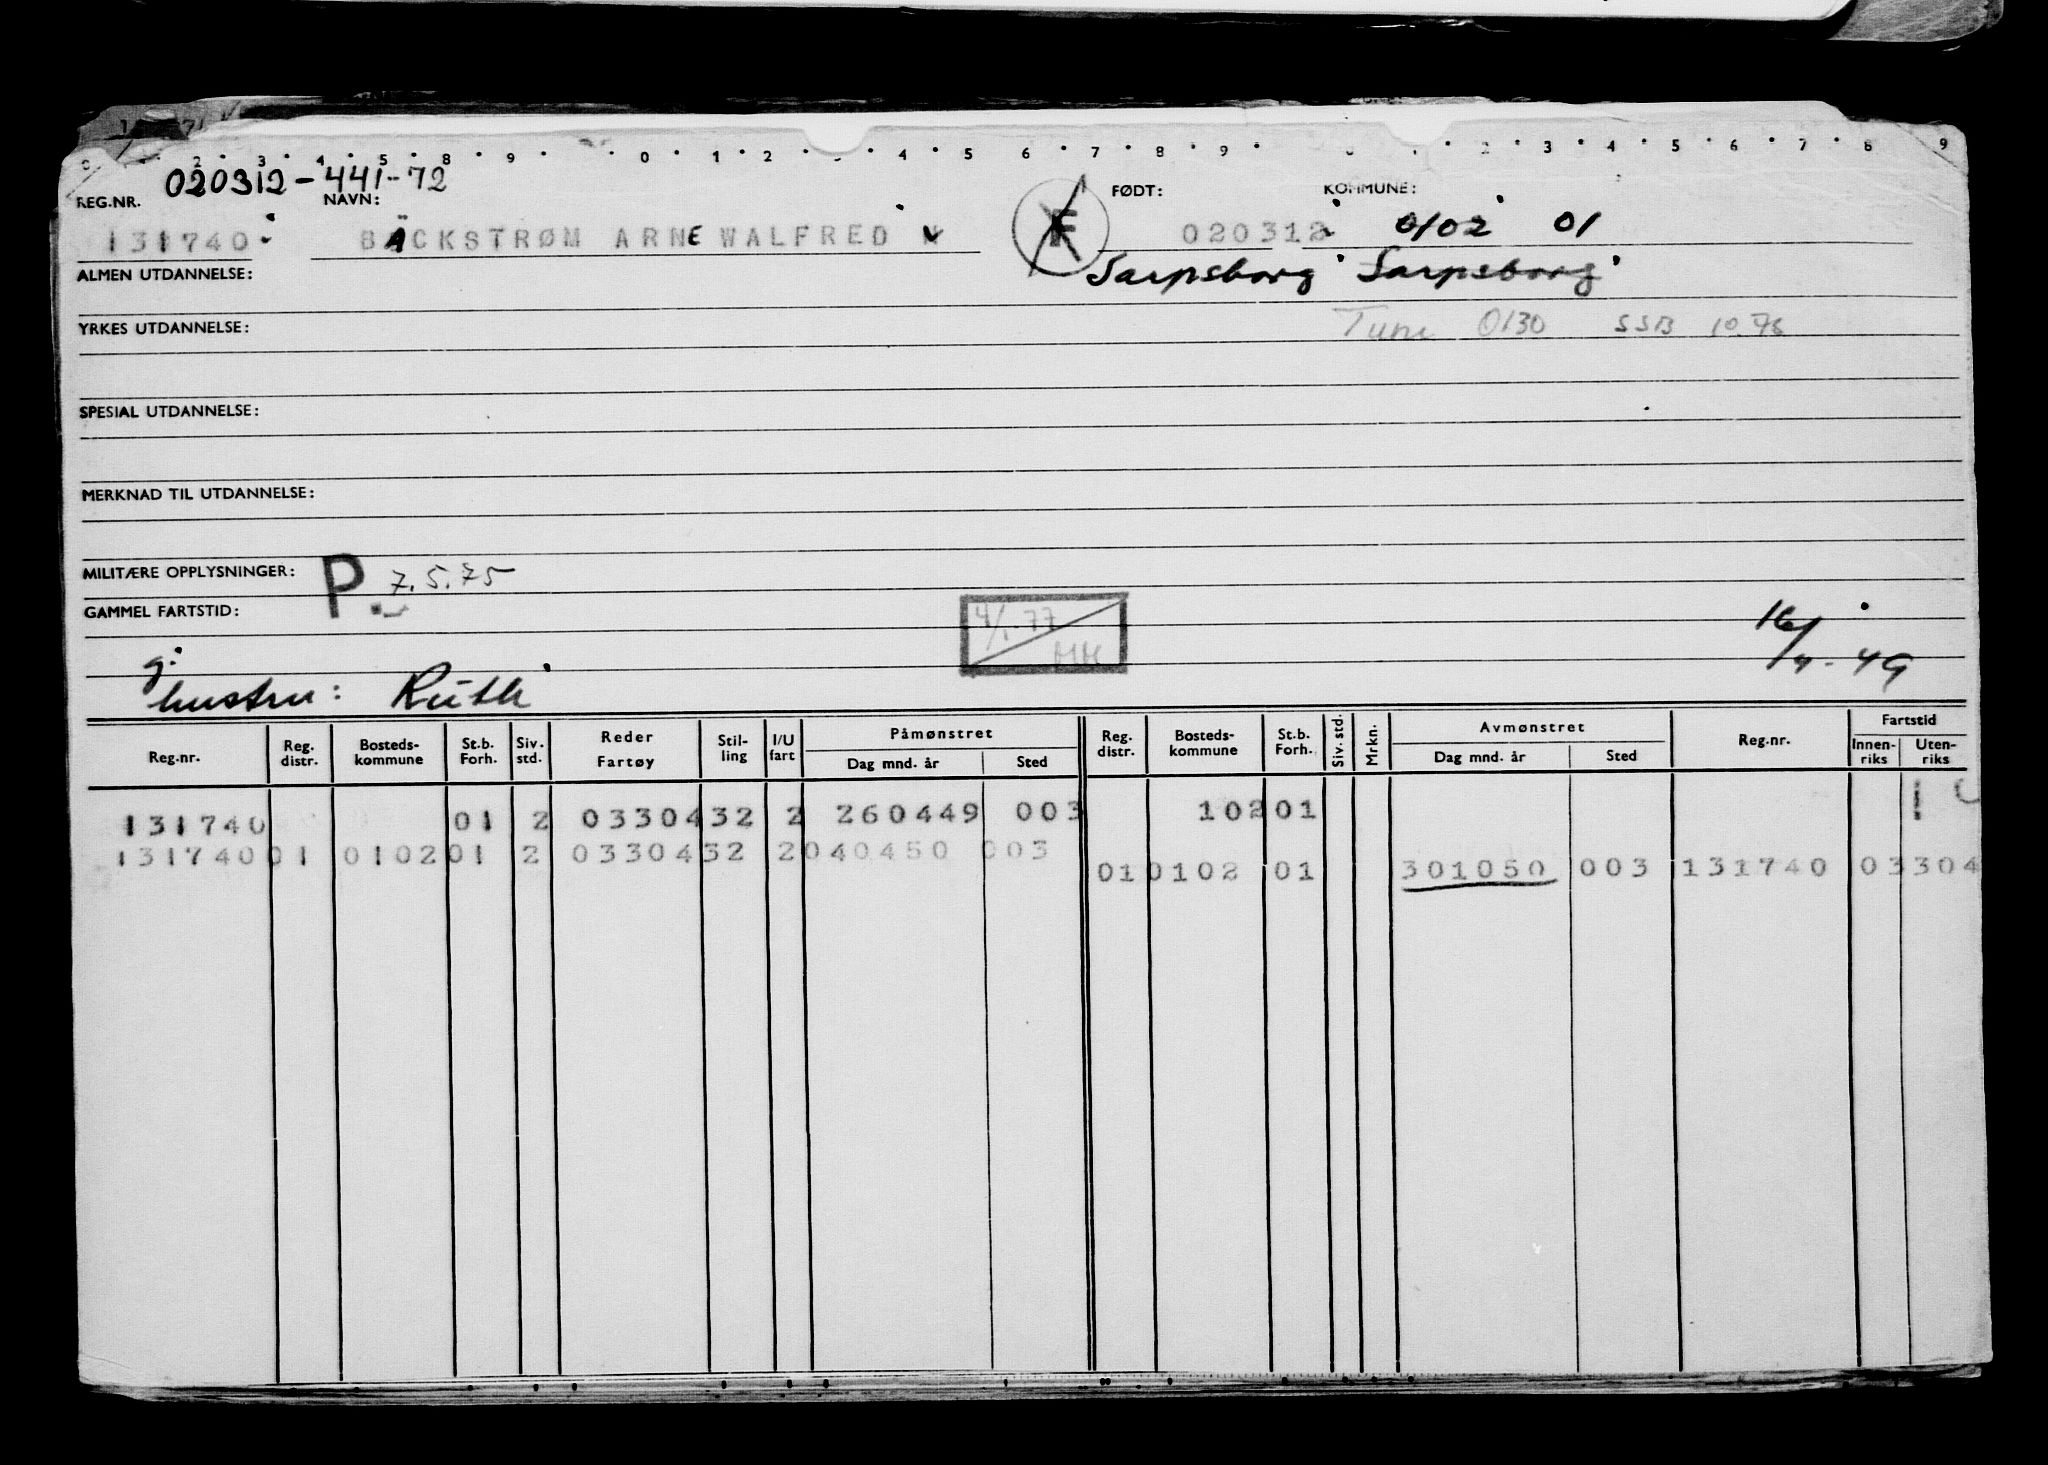 020312-441-72
REG.NR. NAVN: FØDT: KOMMUNE:
131740 BÄCKSTRØM ARNE WALFRED F 020312 0102 01
ALMEN UTDANNELSE: Sarpsborg Sarpsborg
YRKES UTDANNELSE: Tune 0130 SSB 10.76
SPESIAL UTDANNELSE:
MERKNAD TIL UTDANNELSE:
MILITÆRE OPPLYSNINGER: P. 7.5.75
GAMMEL FARTSTID: 4/1.77 MH 16/4-49
g.
hustru: Ruth
Reg.nr. Reg. distr. Bosteds-kommune St.b. Forh. Siv. std. Reder Fartøy Stil-ling I/U fart Påmønstret Dag mnd. år Sted Reg. distr. Bosteds-kommune St.b. Forh. Siv. std. Mrkn. Avmønstret Dag mnd. år Sted Reg.nr. Fartstid Innen-riks Uten-riks
131740 01 2 03304 32 2 260449 003 102 01
131740 01 0102 01 2 03304 32 2 040450 003
01 0102 01 301050 003 131740 03304